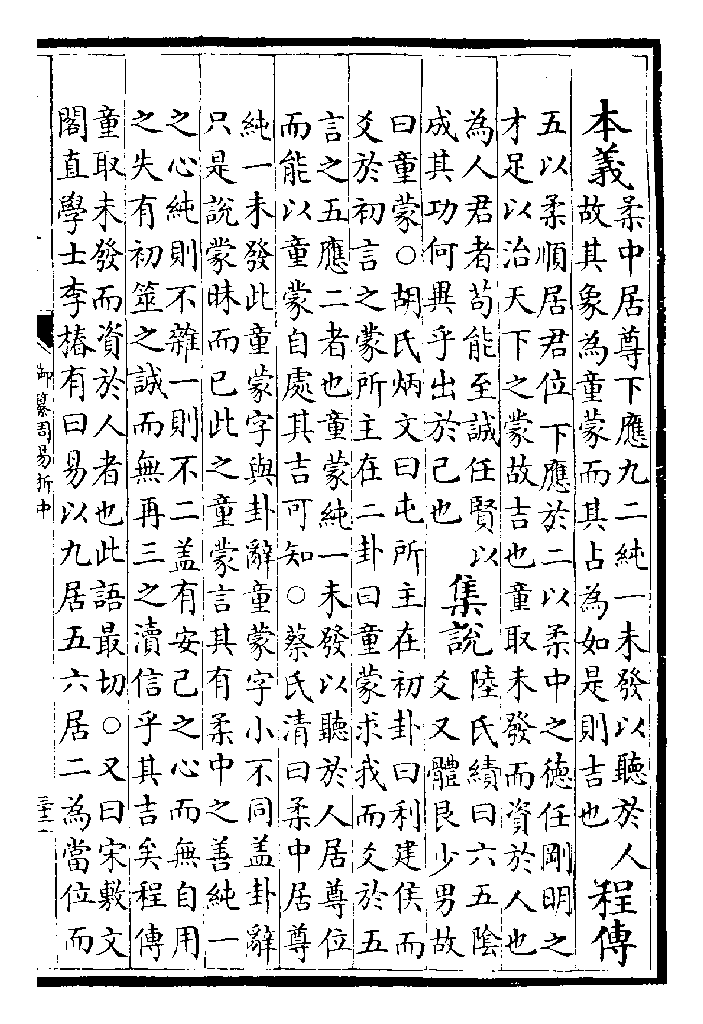 本義
柔中居尊下應九二純一未發以聽於人
故其象為童蒙而其占為如是則吉也
程傳
五以柔順居君位下應於二以柔中之德任剛明之
才足以治天下之蒙故吉也童取未發而資於人也
為人君者苟能至誠任賢以
成其功何異乎出於己也
集說
陸氏績曰六五陰
爻又體艮少男故
曰童蒙○胡氏炳文曰屯所主在初卦曰利建侯而
爻於初言之蒙所主在二卦曰童蒙求我而爻於五
言之五應二者也童蒙純一未發以聽於人居尊位
而能以童蒙自處其吉可知○蔡氏清曰柔中居尊
純一未發此童蒙字與卦辭童蒙字小不同盖卦辭
只是說蒙昧而已此之童蒙言其有柔中之善純一
之心純則不雜一則不二盖有安己之心而無自用
之失有初筮之誠而無再三之瀆信乎其吉矣程傳
童取未發而資於人者也此語最切○又曰宋敷文
閣直學士李椿有曰易以九居五六居二為當位而
御纂周易折中